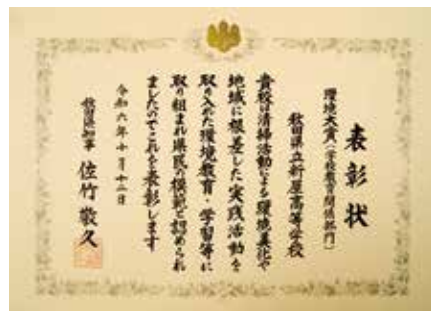 表彰状
環境大賞(学校教育関係部門)
秋田県立新屋高等学校
貴校は清掃活動による環境美化や
地域に根差した実践活動を
取り入れた環境教育・学習等に
取り組まれ県民の模範と認められ
ましたのでこれを表彰します
令和六年十月十二日
秋田県知事 佐竹敬久